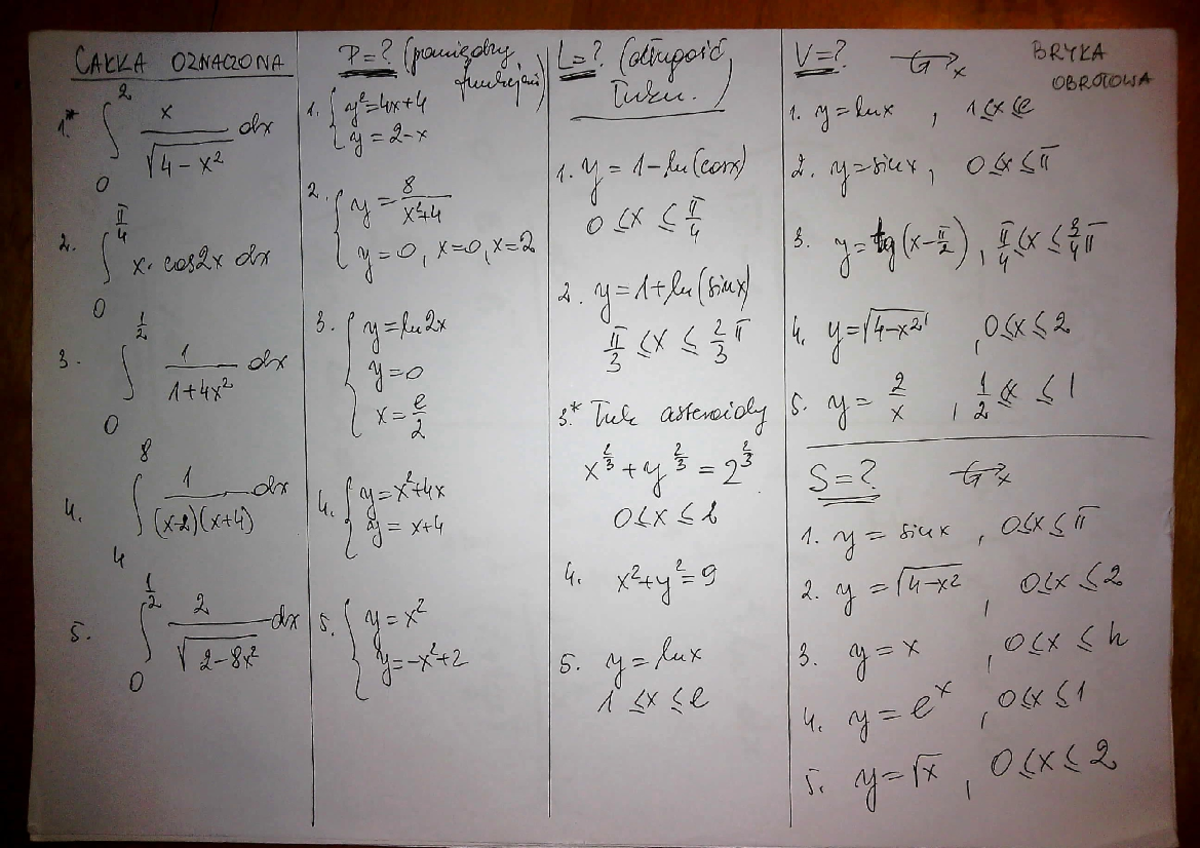 CAŁKA OZNACZONA
1.* ∫₀² x/√(4-x²) dx
2. ∫₀^(π/4) x·cos2x dx
3. ∫₀^(1/2) 1/(1+4x²) dx
4. ∫₄⁸ 1/((x-2)(x+4)) dx
5. ∫₀^(1/2) 2/√(2-8x²) dx
P=? (pomiędzy
funkcjami)
1. { y²=4x+4
y=2-x
2. { y=8/(x²+4)
y=0, x=0, x=2
3. { y=ln2x
y=0
x=e/2
4. { y=x²+4x
y=x+4
5. { y=x²
y=-x²+2
L=? (długość
łuku.)
1. y=1-ln(cosx)
0≤x≤π/4
2. y=1+ln(sinx)
π/3≤x≤2/3π
3.* Łuk asteroidy
x^(2/3)+y^(2/3)=2^(2/3)
0≤x≤2
4. x²+y²=9
5. y=lnx
1≤x≤e
V=? x BRYŁA
OBROTOWA
1. y=lnx, 1≤x≤e
2. y=sinx, 0≤x≤π
3. y=tg(x-π/2), π/4≤x≤3/4π
4. y=√(4-x²), 0≤x≤2
5. y=2/x, 1/2≤x≤1
S=? x
1. y=sinx, 0≤x≤π
2. y=√(4-x²), 0≤x≤2
3. y=x, 0≤x≤h
4. y=e^x, 0≤x≤1
5. y=√x, 0≤x≤2